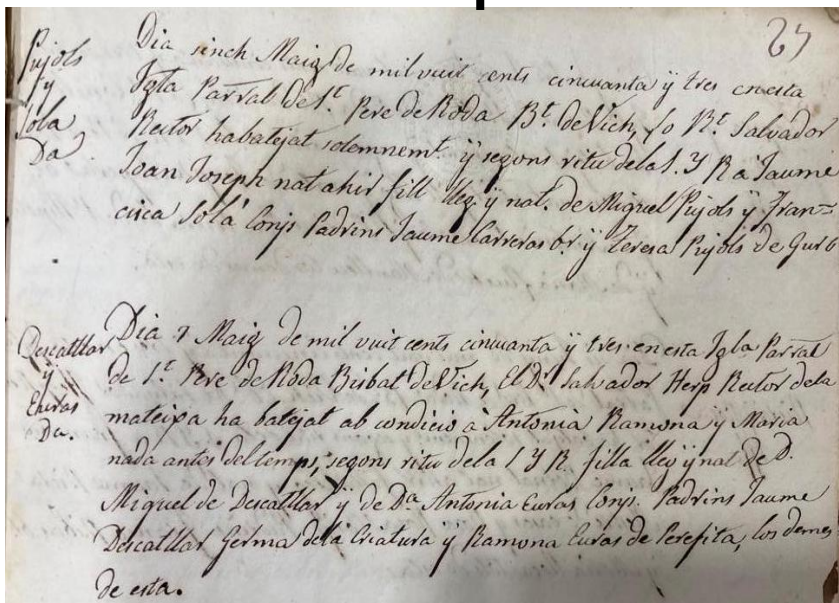 27
Pujols
fy
Sola
Da
Dia sinch Maig de mil vuit cents cincuanta ÿ tres enesta
Igla Parral de St. Pere de Roda Bt. deVich, Jo Rt. Salvador
Rector habatejat solemnemt. ÿ segons ritu dela S. Y R a Jaume
Joan Joseph nat ahir fill lleg. ÿ nat. de Miquel Pujols ÿ Fran=
cisca Solá Conjs Padrins Jaume Carreras br. ÿ Teresa Pujols de Gurb
Descatllar
y
Euras
Da.
Dia 7 Maig de mil vuit cents cincuanta ÿ tres enesta Igla Parral
de St. Pere de Roda Bisbat de Vich, El Dr. Salvador Herp Rector dela
mateixa ha batejat ab condicio á Antonia Ramona ÿ Maria
nada antes deltemps, segons ritu dela S Y R. filla lleg ÿ nat de D.
Miquel de Descatllar ÿ de Da. Antonia Euras Conjs. Padrins Jaume
Descatllar Germa dela Criatura ÿ Ramona Euras de Perafita, los demes
de esta.